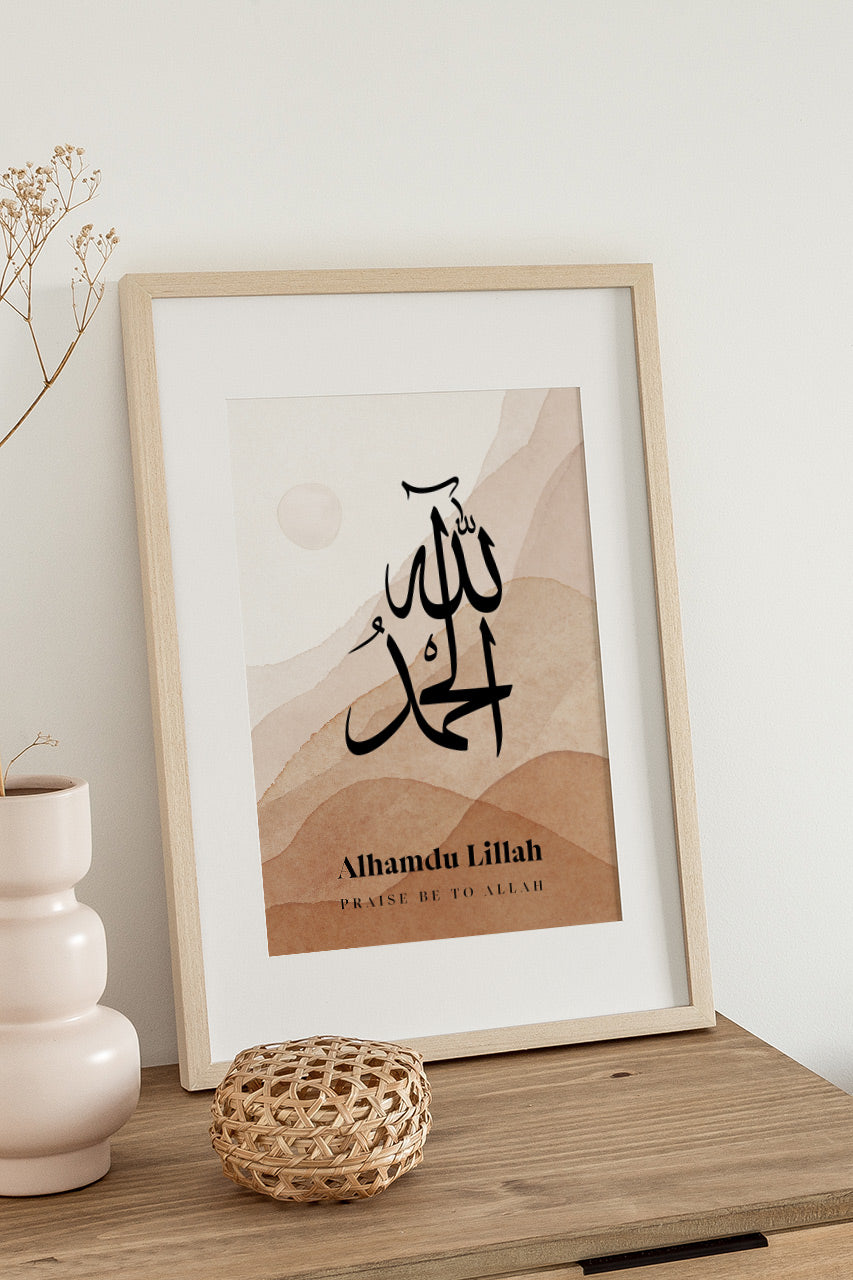 الحمدُ
لله
Alhamdu Lillah
PRAISE BE TO ALLAH